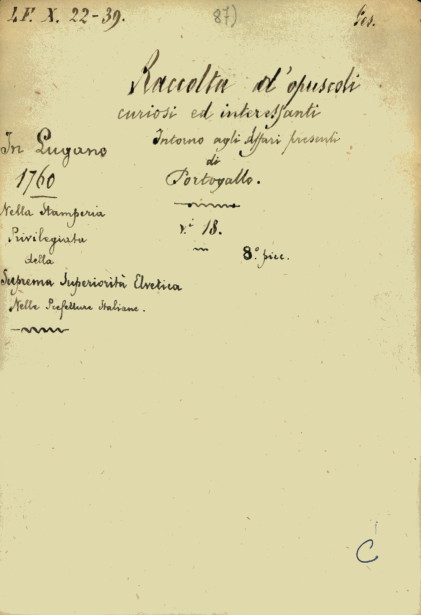 LF. X. 22-39.
87)
Ges.
Raccolta d'opuscoli
curiosi ed interessanti
Intorno agli Affari presenti
di
Portogallo.
In Lugano
1760
Nella Stamperia
Privilegiata
della
Suprema Superiorità Elvetica
Nelle Prefetture Italiane.
18.
8.° picc.
C